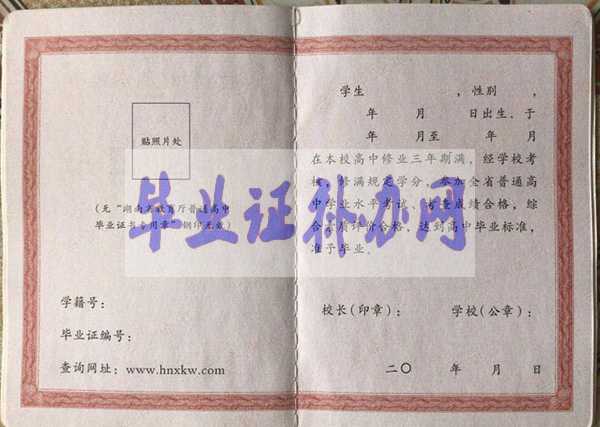 贴照片处
(无“湖南省教育厅普通高中
毕业证书专用章”钢印无效)
学籍号：
毕业证编号：
查询网址：www.hnxkw.com
学生，性别，
年 月 日出生，于
年 月至 年 月
在本校高中修业三年期满，经学校考
核，修满规定学分，参加全省普通高
中学业水平考试、考查成绩合格，综
合素质评价合格，达到高中毕业标准，
准予毕业。
校长(印章)： 学校(公章)：
二〇 年 月 日
毕业证补办网